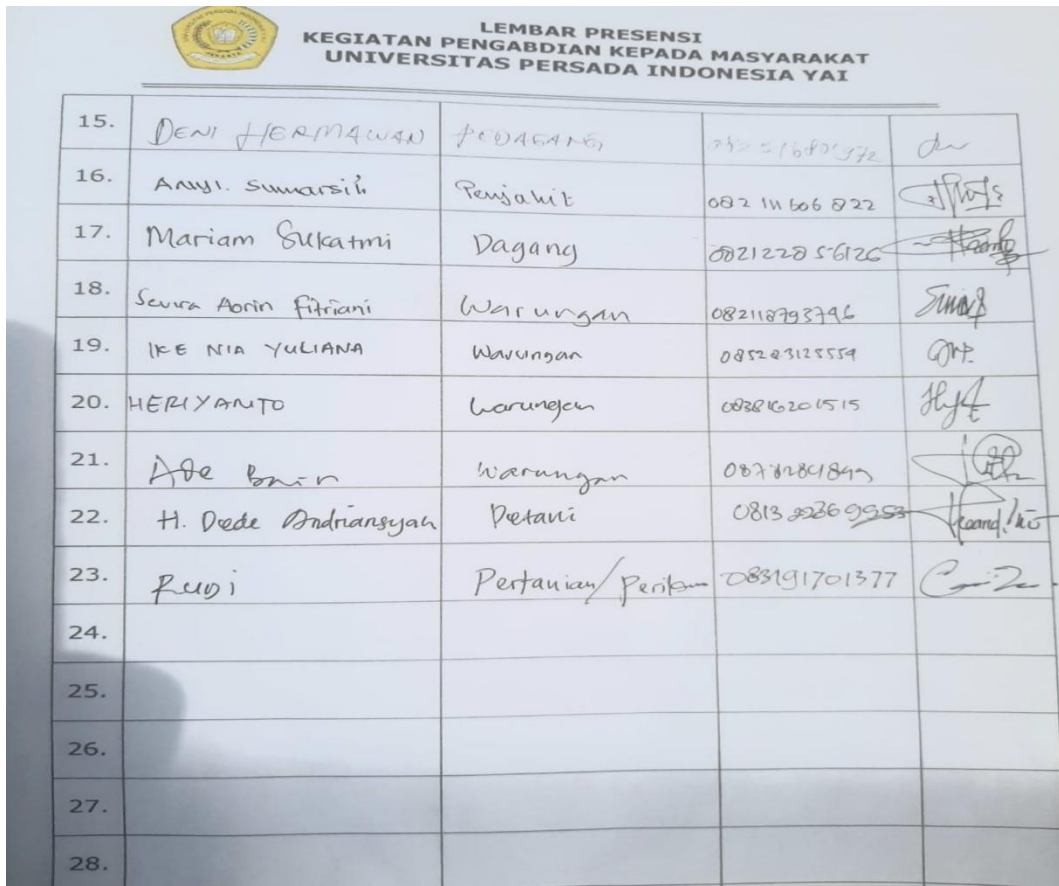 LEMBAR PRESENSI
KEGIATAN PENGABDIAN KEPADA MASYARAKAT
UNIVERSITAS PERSADA INDONESIA YAI
15. DENI HERMAWAN PEDAGANG
16. Sumarsih Penjahit 082 111 606 822
17. Mariam Sukatmi Dagang 082122856126
18. Aorin Fitriani Warungan 082118793746
19. IKE NIA YULIANA Warungan 085283125559
20. HERIYANTO Warungan 083816201515
21. Ade Warungan
22. H. Dede Andriansyah Petani 0813 2236 9953
23. RUDI Pertanian/ 083191701377
24.
25.
26.
27.
28.